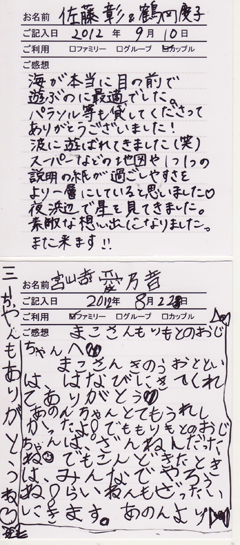 お名前 佐藤 彰 & 鶴岡慶子
ご記入日 2012 年 9 月 10 日
ご利用 □ファミリー □グループ ☑カップル
ご感想
海が本当に目の前で
遊ぶのに最適でした。
パラソル等も貸してくださって
ありがとうございました!
波に遊ばれてきました(笑)
スーパーなどの地図や1つ1つの
説明の紙が過ごしやすさを
より一層にしていると思いました♡
夜浜辺で星を見てきました。
素敵な想い出になりました。
また来ます!!
お名前
ご記入日 2012年 8月 2 日
ご利用 ☑ファミリー □グループ □カップル
ご感想 まこさんもりもとのおじ
ちゃんへ
まこさんきのうおととい
は、はなびにきてくれ
てありがとう♡
あのんちゃんとてもうれし
かったよ!でももりもとのおじ
ちゃんは、ざんねんだった
ね でもこんどきたとき
は、みんなでやろう
ね!らいねんもぜったい
いきます。あのんより
ちゃんもありがとうね